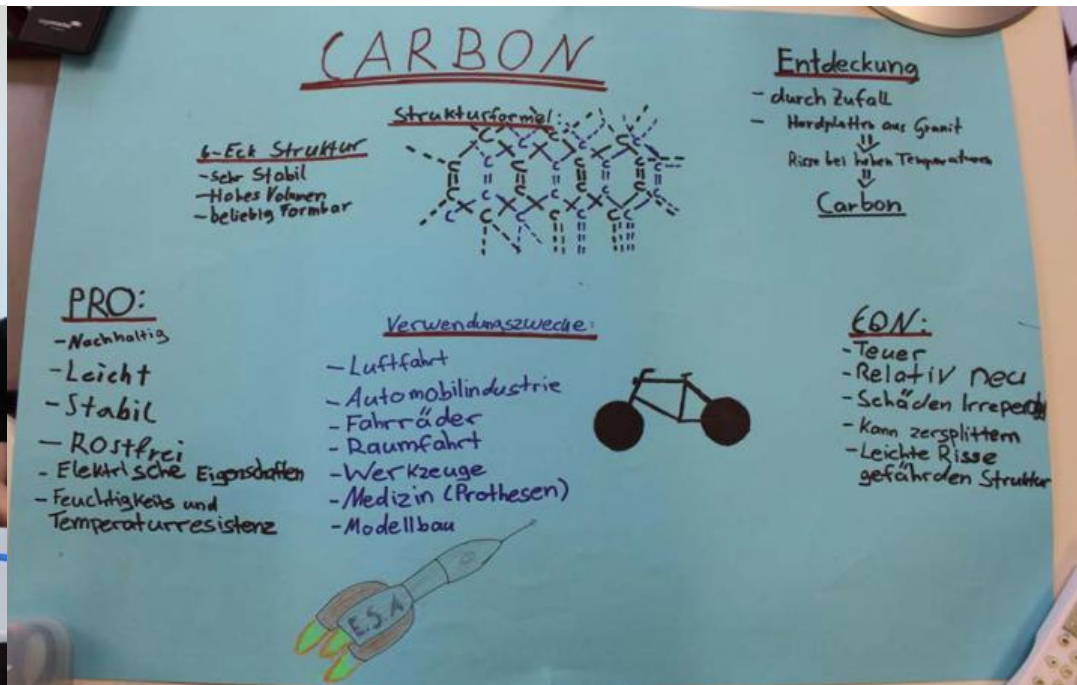 CARBON
Strukturformel:
6-Eck Struktur
-sehr Stabil
-Hohes Volumen
-beliebig Formbar
Entdeckung
- durch Zufall
- Herdplatten aus Granit
⇓
Risse bei hohen Temperaturen
⇓
Carbon
PRO:
-Nachhaltig
-Leicht
-Stabil
-Rostfrei
-Elektrische Eigenschaften
-Feuchtigkeits und
Temperaturresistenz
Verwendungszwecke:
-Luftfahrt
-Automobilindustrie
-Fahrräder
-Raumfahrt
-Werkzeuge
-Medizin (Prothesen)
-Modellbau
E.S.A
CON:
-Teuer
-Relativ neu
-Schäden
-Kann zersplittern
-Leichte Risse
gefährden Struktur